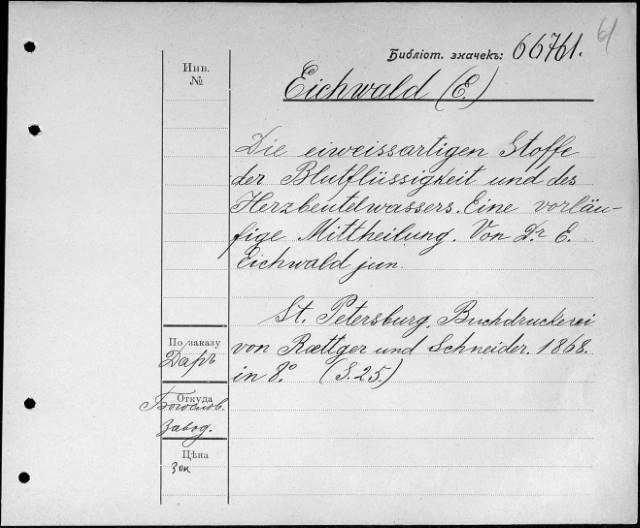 61
Библіот. значекъ: 66761.
Инв.
№
Eichwald (E.)
Die eiweissartigen Stoffe
der Blutflüssigkeit und des
Herzbeutelwassers. Eine vorläu-
fige Mittheilung. Von Dr E.
Eichwald jun.
St. Petersburg, Buchdruckerei
von Rœttger und Schneider. 1868.
in 8.° (S. 25.)
По заказу
Даръ
Откуда
Богослов.
Завод.
Цѣна
30к